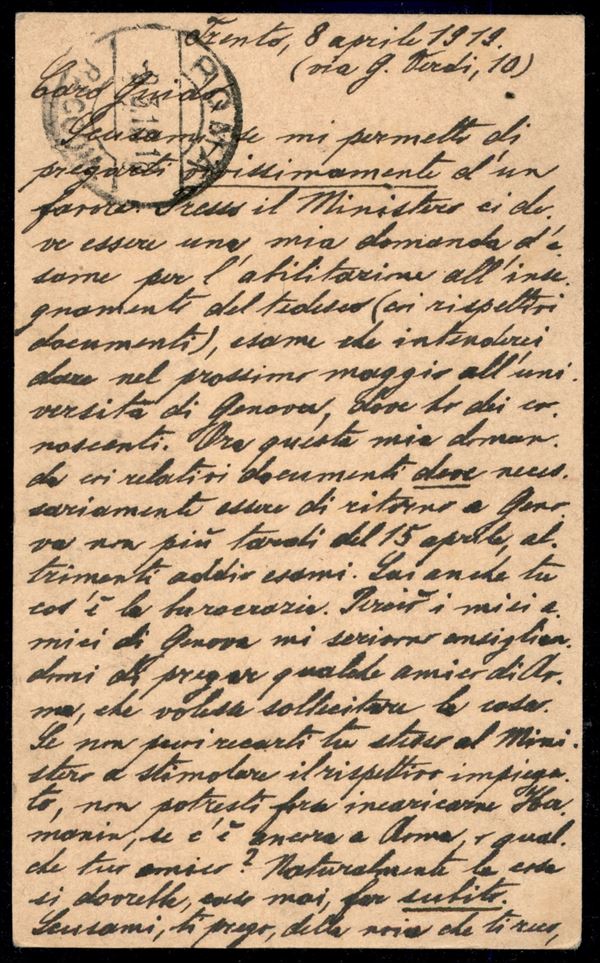 Trento, 8 aprile 1919.
(via G. Verdi, 10)
Caro Guido,
Scusami se mi permetto di
pregarti vivissimamente d'un
favore. Presso il Ministero ci de-
ve essere una mia domanda d'e-
same per l'abilitazione all'inse-
gnamento del tedesco (coi rispettivi
documenti), esame che intenderei
dare nel prossimo maggio all'uni-
versità di Genova, dove ho dei co-
noscenti. Ora questa mia doman-
da coi relativi documenti deve neces-
sariamente essere di ritorno a Geno-
va non più tardi del 15 aprile, al-
trimenti addio esami. Sai anche tu
cos'è la burocrazia. Perciò i miei a-
mici di Genova mi scrivono consiglian-
domi di pregar qualche amico di Ro-
ma, che volesse sollecitare la cosa.
Se non puoi recarti tu stesso al Mini-
stero a stimolare il rispettivo impiega-
to, non potresti forse incaricarne Her-
manin, se c'è ancora a Roma, o qual-
che tuo amico? Naturalmente la cosa
si dovrebbe, caso mai, far subito.
Scusami, ti prego, della noia che ti reco,
ROMA